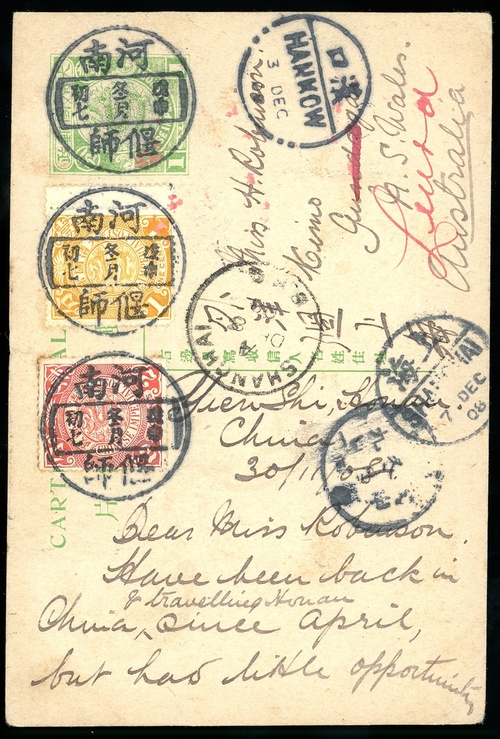 河南
戊申
冬月
初七
偃師
河南
戊申
冬月
初七
偃師
河南
戊申
冬月
初七
偃師
1
漢口
HANKOW
3 DEC
Miss H. Robinson
Kimo
N. S. Wales.
Australia
SHANGHAI
上海
SHANGHAI
7 DEC
08
CART
AL
片
Yien Shi, Honan
China
30/11/08
Dear Miss Robinson.
Have been back in
& travelling Honan
China, since April,
but had little opportunity